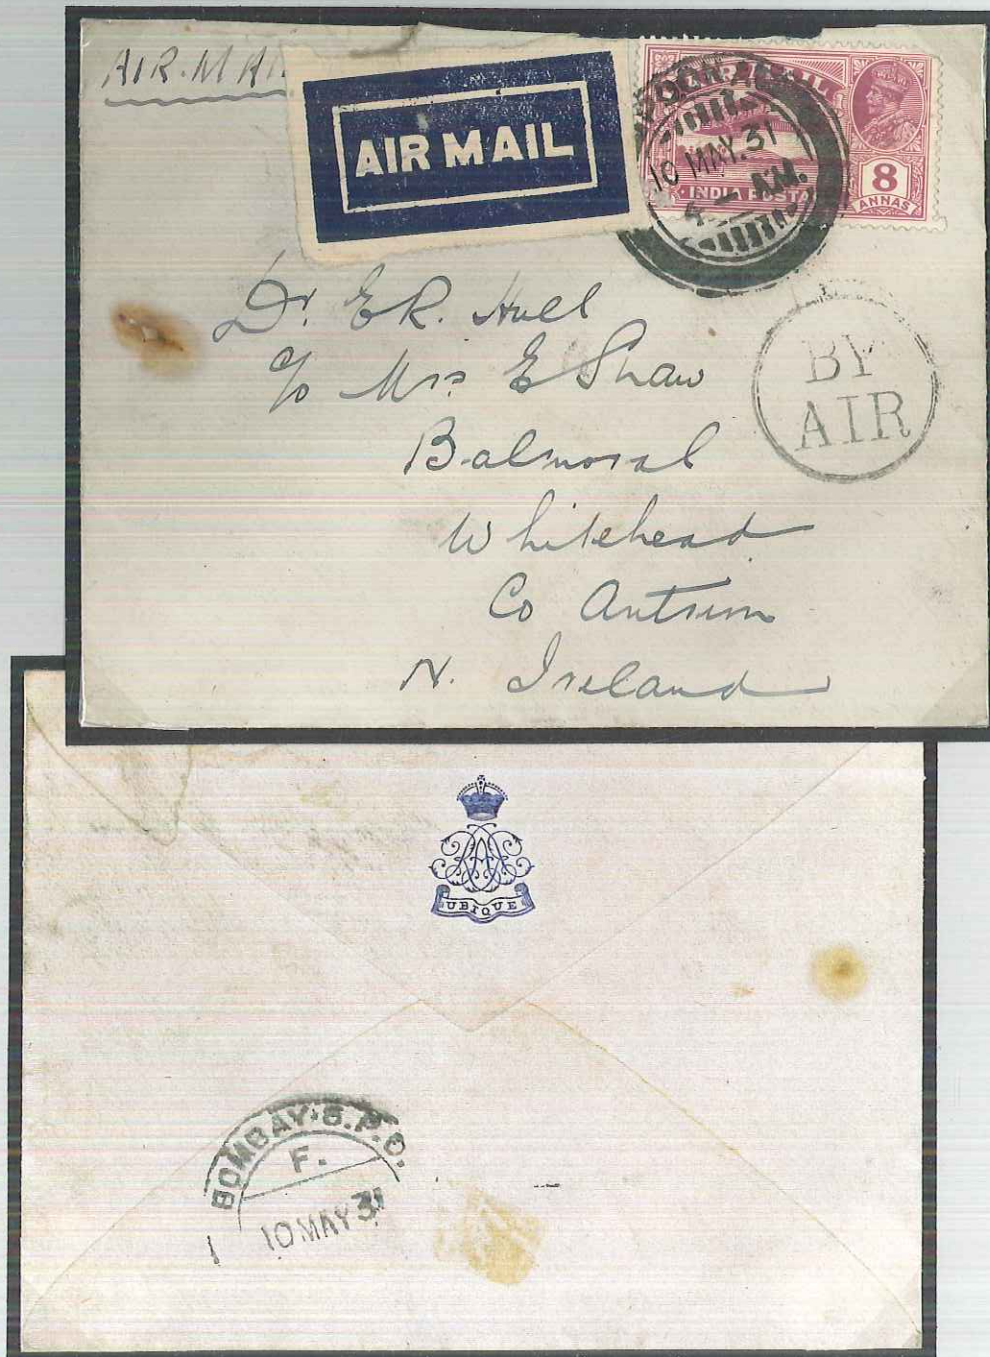 AIR. MAI
AIR MAIL
AIR MAIL
10 MAY. 31
4 - A.M.
INDIA POSTA
8
ANNAS
Dr. E R. Hull
c/o Mrs E Shaw
Balmoral
Whitehead
Co Antrim
N. Ireland
BY
AIR
UBIQUE
BOMBAY G.P.O.
F.
10 MAY 31
1